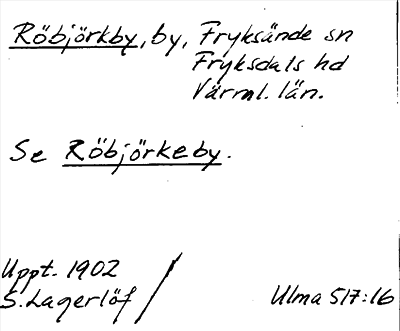 Röbjörkby, by, Fryksände sn
Fryksdals hd
Värml. län.
Se Röbjörkeby.
Uppt. 1902
S. Lagerlöf
Ulma 517:16